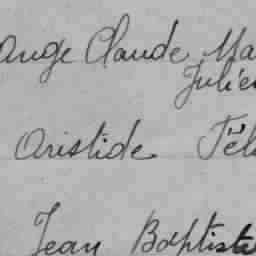 Ange Claude Ma
Julie
Aristide Féli
Jean Baptiste